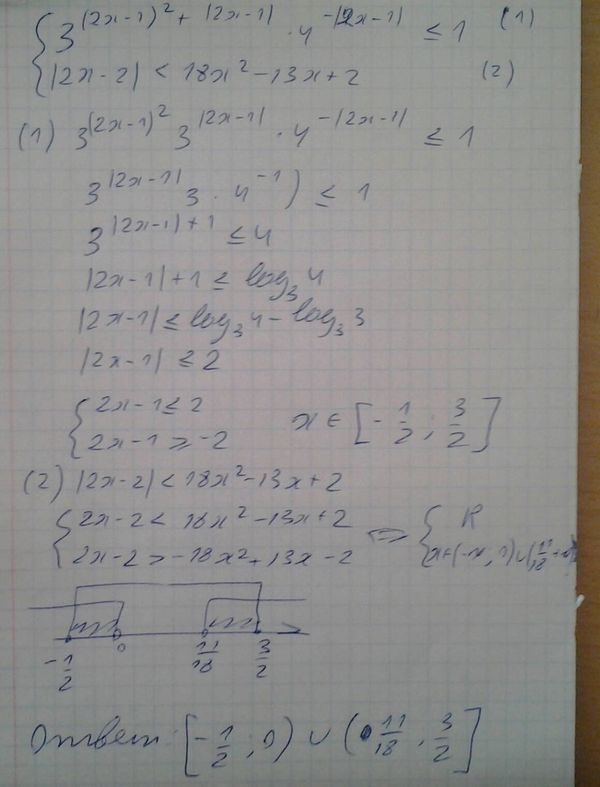 { 3^{(2x-1)^2 + |2x-1|} · 4^{-|2x-1|} ≤ 1 (1)
|2x-2| < 18x² - 13x + 2 (2)
(1) 3^{(2x-1)^2} 3^{|2x-1|} · 4^{-|2x-1|} ≤ 1
3^{|2x-1|} 3 · 4^{-1}) ≤ 1
3^{|2x-1|+1} ≤ 4
|2x-1|+1 ≤ log₃ 4
|2x-1| ≤ log₃ 4 - log₃ 3
|2x-1| ≤ 2
{ 2x-1 ≤ 2
2x-1 ≥ -2 x ∈ [-1/2 ; 3/2]
(2) |2x-2| < 18x² - 13x + 2
{ 2x-2 < 18x² - 13x + 2 ⇔ { R
2x-2 > -18x² + 13x - 2
-1/2 0 11/18 3/2
Ответ: [-1/2 ; 0) ∪ (11/18 , 3/2]